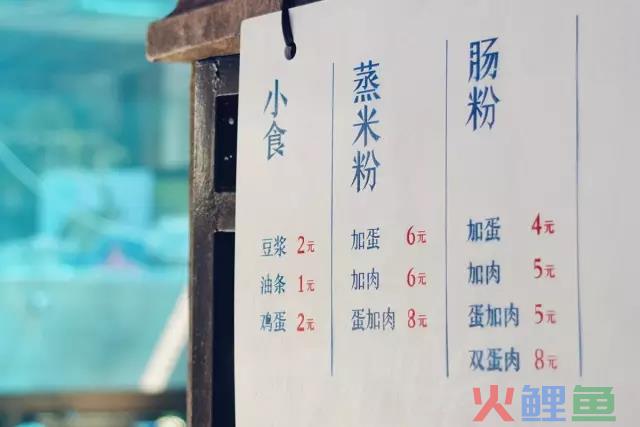 小食
豆浆 2元
油条 1元
鸡蛋 2元
蒸米粉
加蛋 6元
加肉 6元
蛋加肉 8元
肠粉
加蛋 4元
加肉 5元
蛋加肉 5元
双蛋肉 8元
火鲤鱼